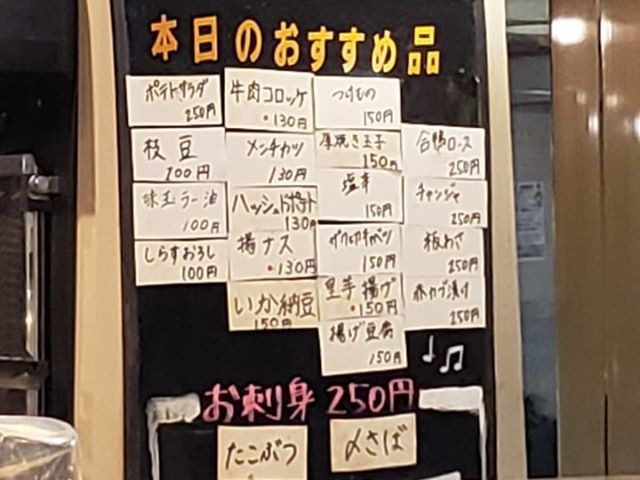 本日のおすすめ品
ポテトサラダ
250円
枝豆
200円
味玉ラー油
100円
しらすおろし
100円
牛肉コロッケ
130円
メンチカツ
130円
ハッシュドポテト
130円
揚ナス
130円
いか納豆
150円
つけもの
150円
厚焼き玉子
150円
塩辛
150円
150円
里芋揚げ
150円
揚げ豆腐
150円
合鴨ロース
250円
チャンジャ
250円
板わさ
250円
赤カブ漬け
250円
お刺身250円
たこぶつ
〆さば